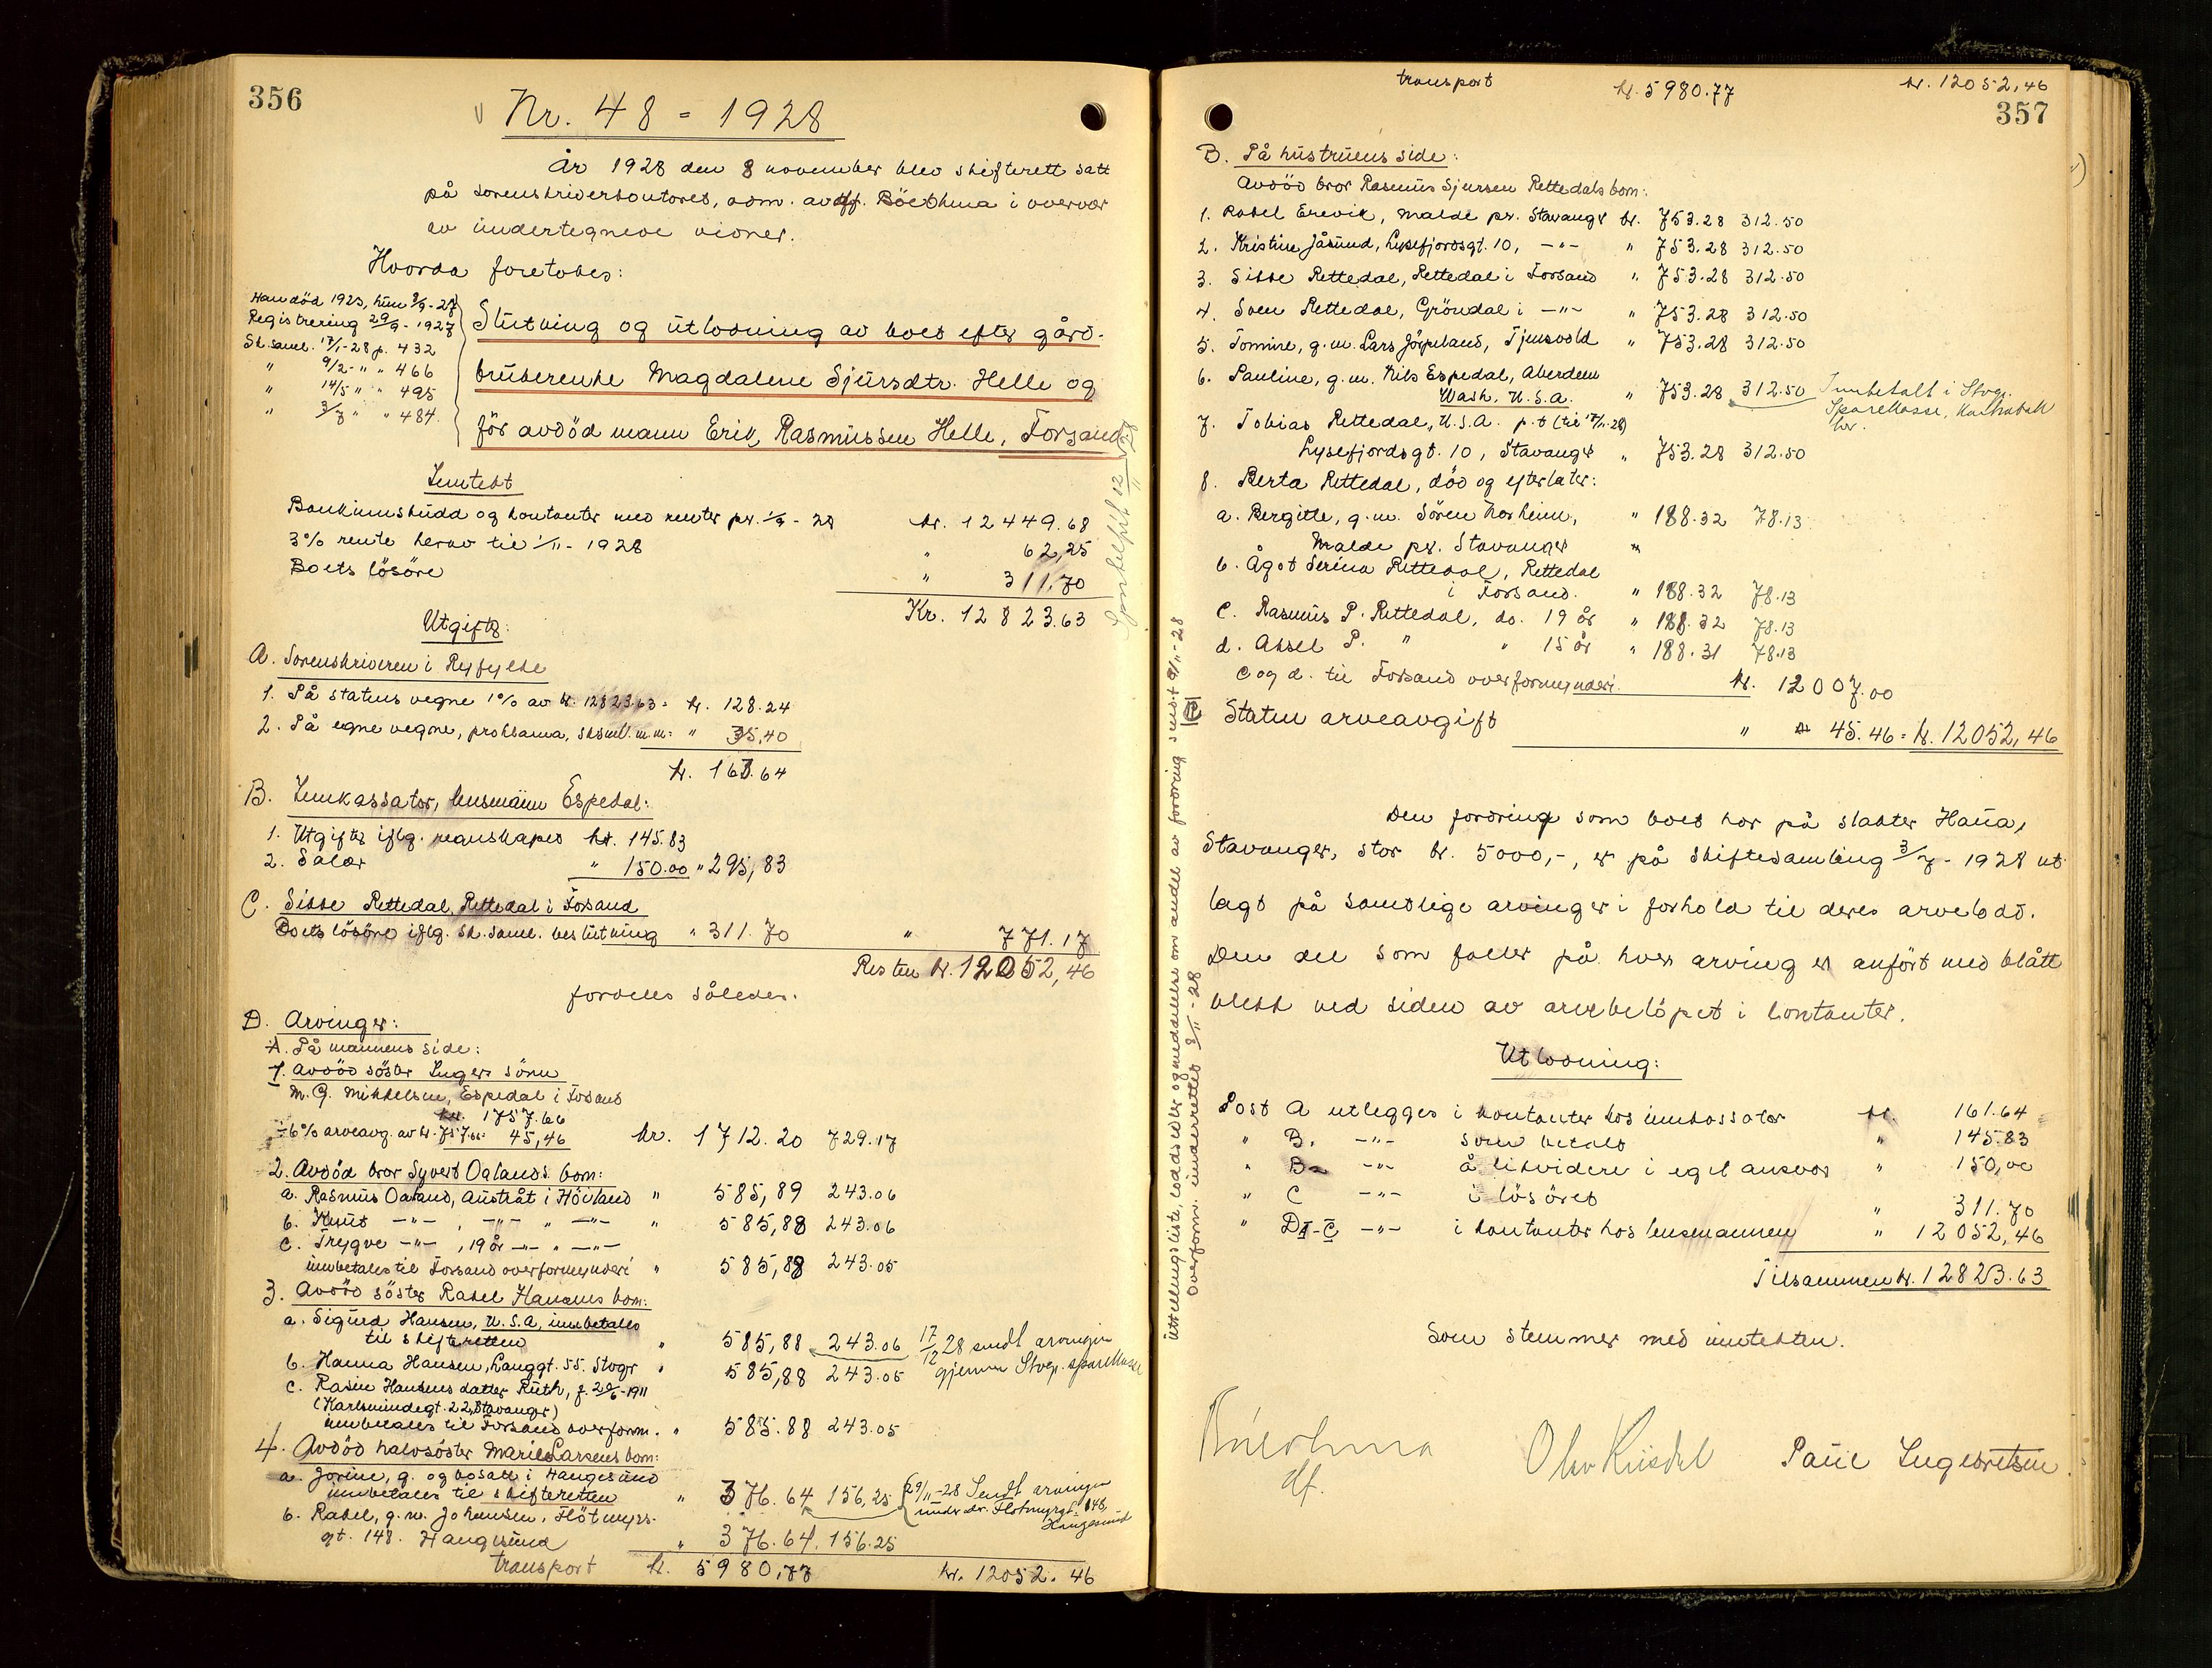 356
Nr. 48 - 1928
År 1928 den 8 november blev skifterett satt
på sorenskriverkontoret, adm. av df. Böethma i overvær
av undertegnede vidner.
Hvorda foretokes:
Han död 1923, hun 8/9-27
Registrering 29/9-1927
Sk.saml. 17/1-28 p. 432
" 9/2- " " 466
" 14/5 " " 495
" 3/7 " " 484.
Slutning og utlodning av boet efter gård-
brukerenke Magdalene Sjursdtr. Helle og
för avdöd mann Erik Rasmussen Helle, Forsand
Inntekt
Bankinnskudd og kontanter med renter pr. 1/9 - 28 kr. 12449.68
3% rente herav til 1/11 - 1928 " 62,25
Boets lösöre " 311.70
Kr. 12823.63
Utgifter:
A. Sorenskriveren i Ryfylke
1. På statens vegne 1% av kr. 12823.63 = kr. 128.24
2. På egne vegne, proklama, sksml. m.m: " 35,40
kr. 163.64
B. Innkassator, lensmann Espedal:
1. Utgifter iflg. regnskapet kr. 145.83
2. Salær " 150.00 " 295,83
C. Sikke Rettedal, Rettedal i Forsand
Boets lösöre iflg. sk.saml. beslutning " 311.70 " 771.17
Resten kr. 12052,46
fordeles således.
D. Arvinger:
A. På mannens side:
1. Avdöd söster Ingers sönn
M. G. Mikkelsen, Espedal i Fosand
kr. 1757.66
- 6% arveavg. av kr. 757.66: 45,46 kr. 1712.20 729.17
2. Avdöd bror Syvert Oalands born:
a. Rasmus Oaland, Austråt i Höiland " 585,89 243.06
b. Knut -"- , -"- " -"- " 585,88 243.06
c. Trygve -"- , 19 år -"- " -"-
innbetales til Forsand overformynderi " 585,88 243.05
3. Avdöd söster Rakel Hansens born:
a. Sigurd Hansen, U.S.A, innbetales
til skifteretten " 585,88 243.06 17/12 28 sendt arvingen
b. Hanna Hansen, Langgt. 55. Stvgr " 585,88 243.05 gjennem Stvgr. sparekasse
c. Rasin Hansens datter Ruth, f. 20/6-1911
(Karlsmindegt. 22, Stavanger)
innbetales til Forsand overform. " 585.88 243.05
4. Avdöd halvsöster Marie Larsens born:
a. Jorine, g. og bosatt i Haugesund
innbetales til skifteretten " 376.64 156,25 29/11-28 Sendt arvingen
under adr. Flotmyrgt. 148, Haugesund
b. Rakel, g.m. Johansen, Flötmyr-
gt. 148. Haugesund " 376.64. 156.25
transport kr. 5980,77 kr. 12052.46
transport kr. 5980.77 kr. 12052,46
357
B. På hustruens side:
Avdöd bror Rasmus Sjursen Rettedals born:
1. Rakel Erevik, Malde pr. Stavanger kr. 753.28 312.50
2. Kristine Jåsund, Lysefjordsgt. 10, -"- " 753.28 312.50
3. Sikke Rettedal, Rettedal i Forsand " 753.28 312.50
4. Sven Rettedal, Gröndal i -"- " 753.28 312.50
5. Tomine, g.m. Lars Jörpeland, Tjensvold " 753.28 312.50
6. Pauline, g.m. Nils Espedal, Aberdeen
Wash, U.S.A. " 753.28 312.50 Innbetalt i Stvgr.
Sparekasse,
7. Tobias Rettedal, U.S.A. p.t (til 17/11-28)
Lysefjordsgt. 10, Stavanger " 753.28 312.50
8. Berta Rettedal, död og efterlater:
a. Bergitte, g.m. Sören Norheim, " 188.32 78.13
Malde pr. Stavanger "
b. Ågot Serina Rettedal, Rettedal
i Forsand. " 188.32 78.13
c. Rasmus P. Rettedal, do. 19 år " 188.32 78.13
d. Aksel P. " " 15 år " 188.31 78.13
c og d. til Forsand overformynderi. kr. 12007.00
C Staten arveavgift " 45.46 = kr. 12052,46
Den fordring som boet har på slakter Haua,
Stavanger, stor kr. 5000,-, er på skiftesamling 3/7 - 1928 ut
lagt på samtlige arvinger i forhold til deres arvelodd.
Den del som faller på hver arving er anfört med blått
blekk ved siden av arvebelöpet i kontanter.
Utlodning:
Post A utlegges i kontanter hos innkassator kr 161.64
" B. -"- som betalt " 145.83
" B -"- å likvidere i eget ansvar " 150,00
" C -"- i lösöret " 311.70
" D I-C -"- i kontanter hos lensmannen " 12052,46
Tilsammen kr. 12823.63
Som stemmer med inntekten.
df.
Olav Kiisdal
Paul Ingebretsen
Utlodningsliste, loddsedler og meddelelse om andel av fordring sendt 9/11-28
Overform. underrettet 8/11-28